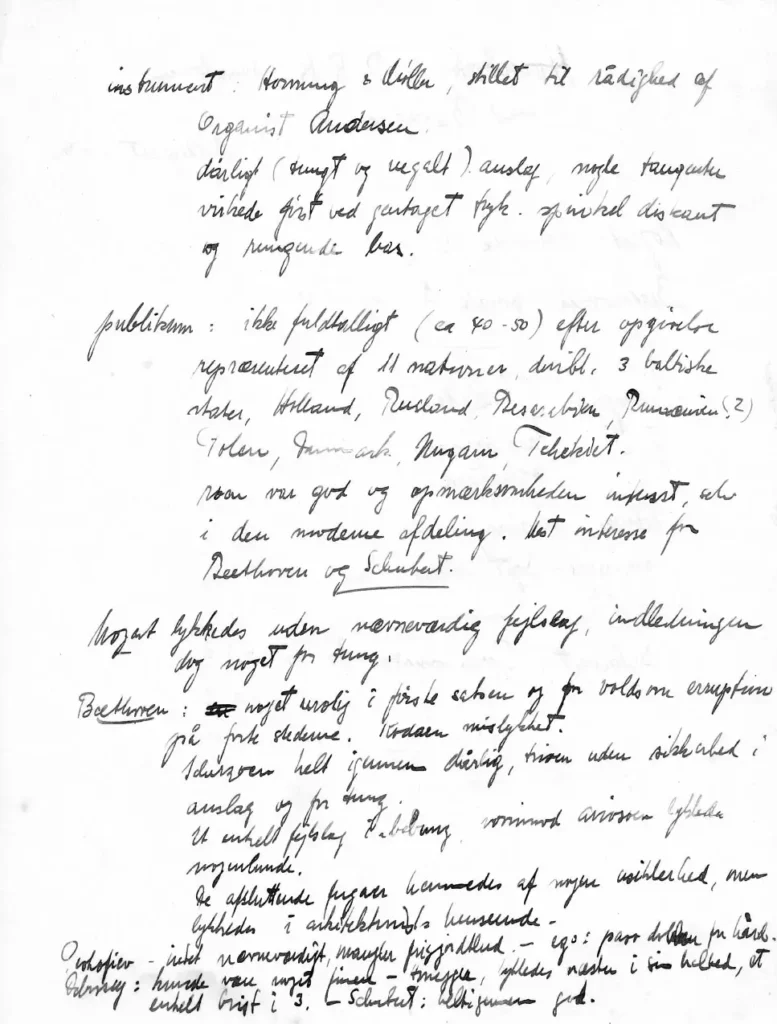 instrument : Hornung & Møller, stillet til rådighed af
Organist Andersen.
dårligt (tungt og uegalt) anslag, nogle tangenter
virkede først ved gentaget tryk. spinkel diskant
og rungende bas.
publikum : ikke fuldtalligt (ca 40-50) efter opgivelse
repræsenteret af 11 nationer, deribl. 3 baltiske
stater, Holland, Rusland, Bessarabien, Rumænien (?)
Polen, Danmark, Ungarn, Tchekiet.
roen var god og opmærksomheden intenst, selv
i den moderne afdeling. Mest interesse for
Beethoven og Schubert.
Mozart lykkedes uden nævneværdig fejlslag, indledningen
dog noget for tung.
Beethoven : noget urolig i første satsen og for voldsom erruption
på forte stederne. Codaen mislykket.
Scherzoen helt igennem dårlig, trioen uden sikkerhed i
anslag og for tung.
Et enkelt fejlslag i "bebung", hvorimod ariosoen lykkedes
nogenlunde.
De afsluttende fugaer hæmmedes af nogen usikkerhed, men
lykkedes i arkitektonisk henseende -
Prokofiev - intet nævneværdigt, mangler - ego : for hård.
Debussy : kunde være noget finere - lykkedes næsten i sin helhed, et
enkelt brist i 3. - Schubert : heltigennem god.